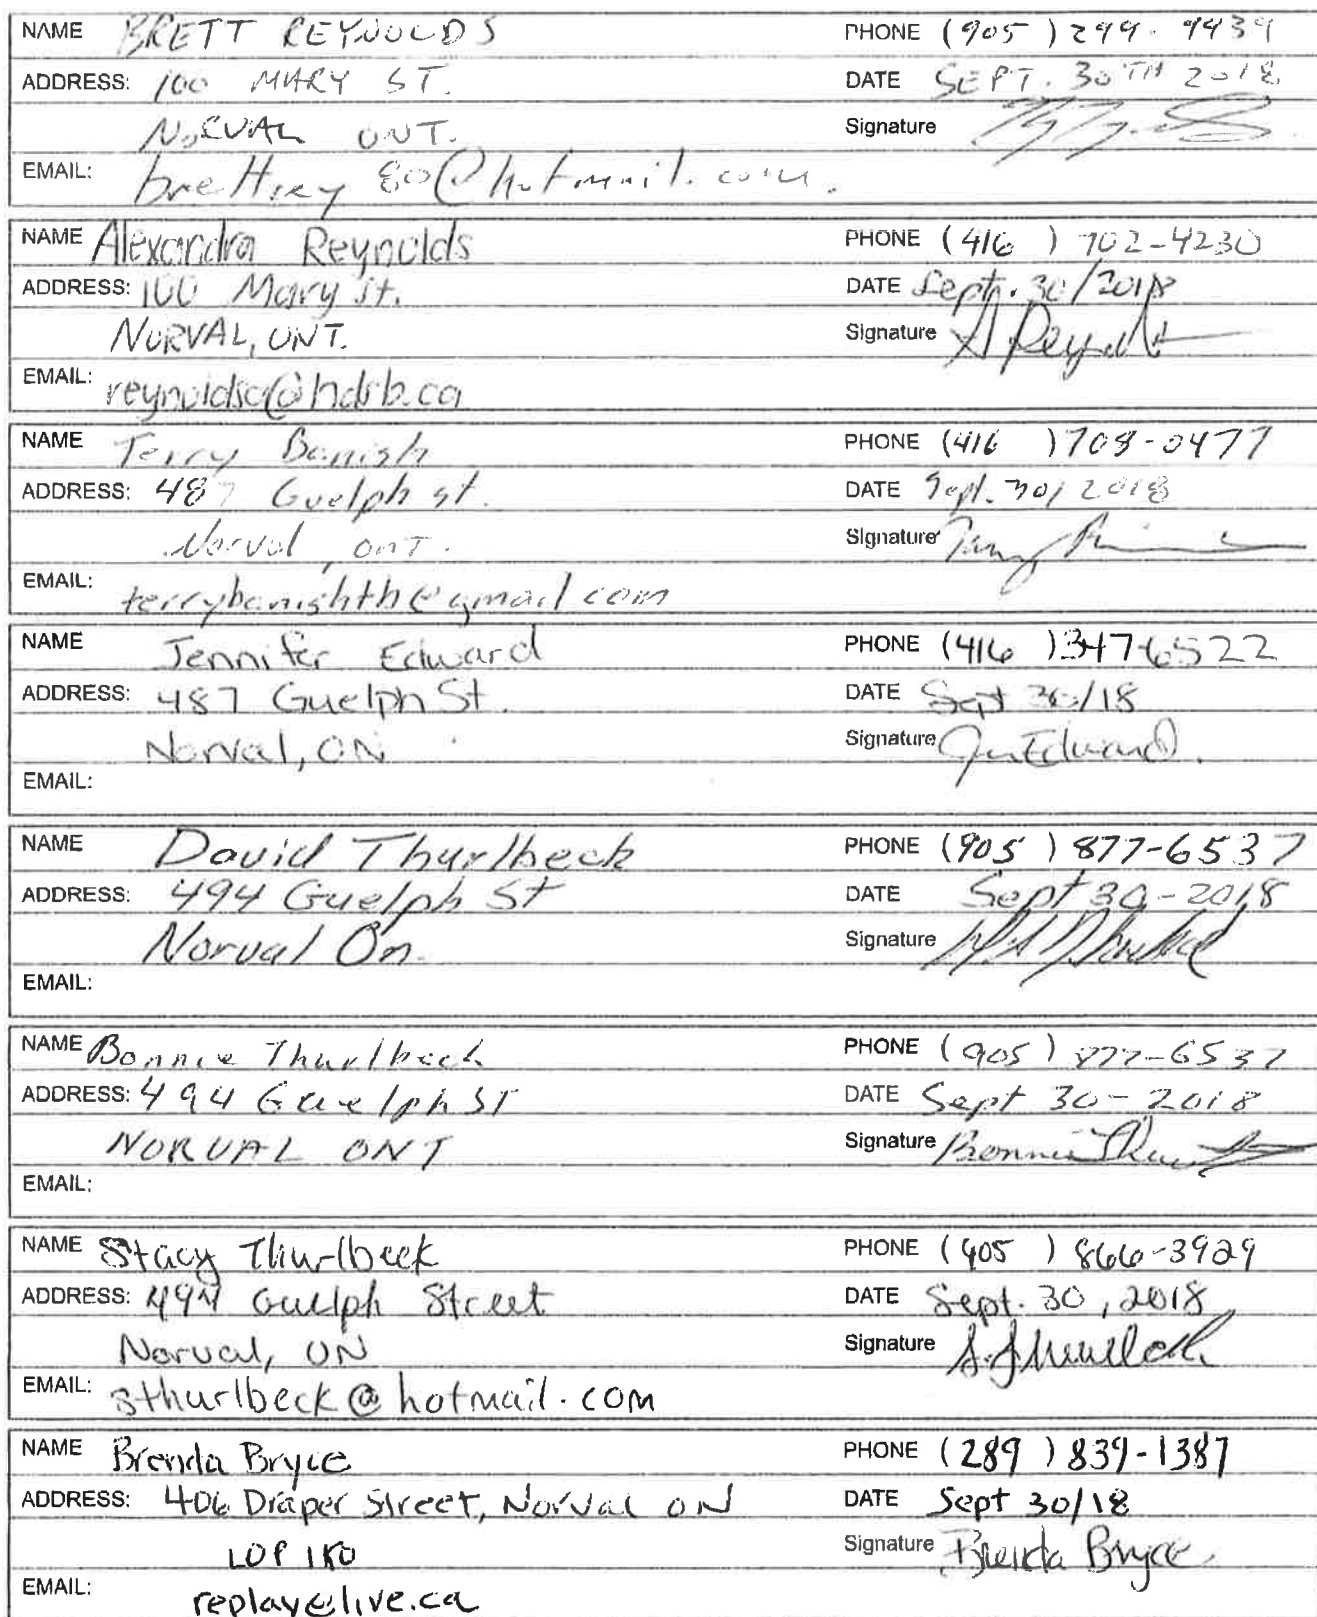 NAME BRETT REYNOLDS PHONE (905) 299-9439
ADDRESS: 100 MARY ST. DATE SEPT. 30TH 2018
NORVAL ONT. Signature
EMAIL: brettrey80@hotmail.com.
NAME Alexandra Reynolds PHONE (416) 702-4230
ADDRESS: 100 Mary St. DATE Sept. 30/2018
NORVAL, ONT. Signature A Reynolds
EMAIL: reynoldsa@hdsb.ca
NAME Terry Banish PHONE (416) 708-0477
ADDRESS: 487 Guelph st. DATE Sept. 30/2018
Norval, ONT. Signature
EMAIL: terrybanishth@gmail com
NAME Jennifer Edward PHONE (416) 347-6522
ADDRESS: 487 Guelph St. DATE Sept 30/18
Norval, ON Signature Jen Edward.
EMAIL:
NAME David Thurlbeck PHONE (905) 877-6537
ADDRESS: 494 Guelph St DATE Sept 30-2018
Norval On. Signature
EMAIL:
NAME Bonnie Thurlbeck PHONE (905) 877-6537
ADDRESS: 494 Guelph ST DATE Sept 30-2018
NORVAL ONT Signature Bonnie
EMAIL:
NAME Stacy Thurlbeck PHONE (905) 866-3929
ADDRESS: 494 Guelph Street DATE Sept. 30, 2018
Norval, ON Signature S. Thurlbeck
EMAIL: sthurlbeck@hotmail.com
NAME Brenda Bryce PHONE (289) 839-1387
ADDRESS: 406 Draper Street, Norval ON DATE Sept 30/18
L0P 1K0 Signature Brenda Bryce
EMAIL: replay@live.ca